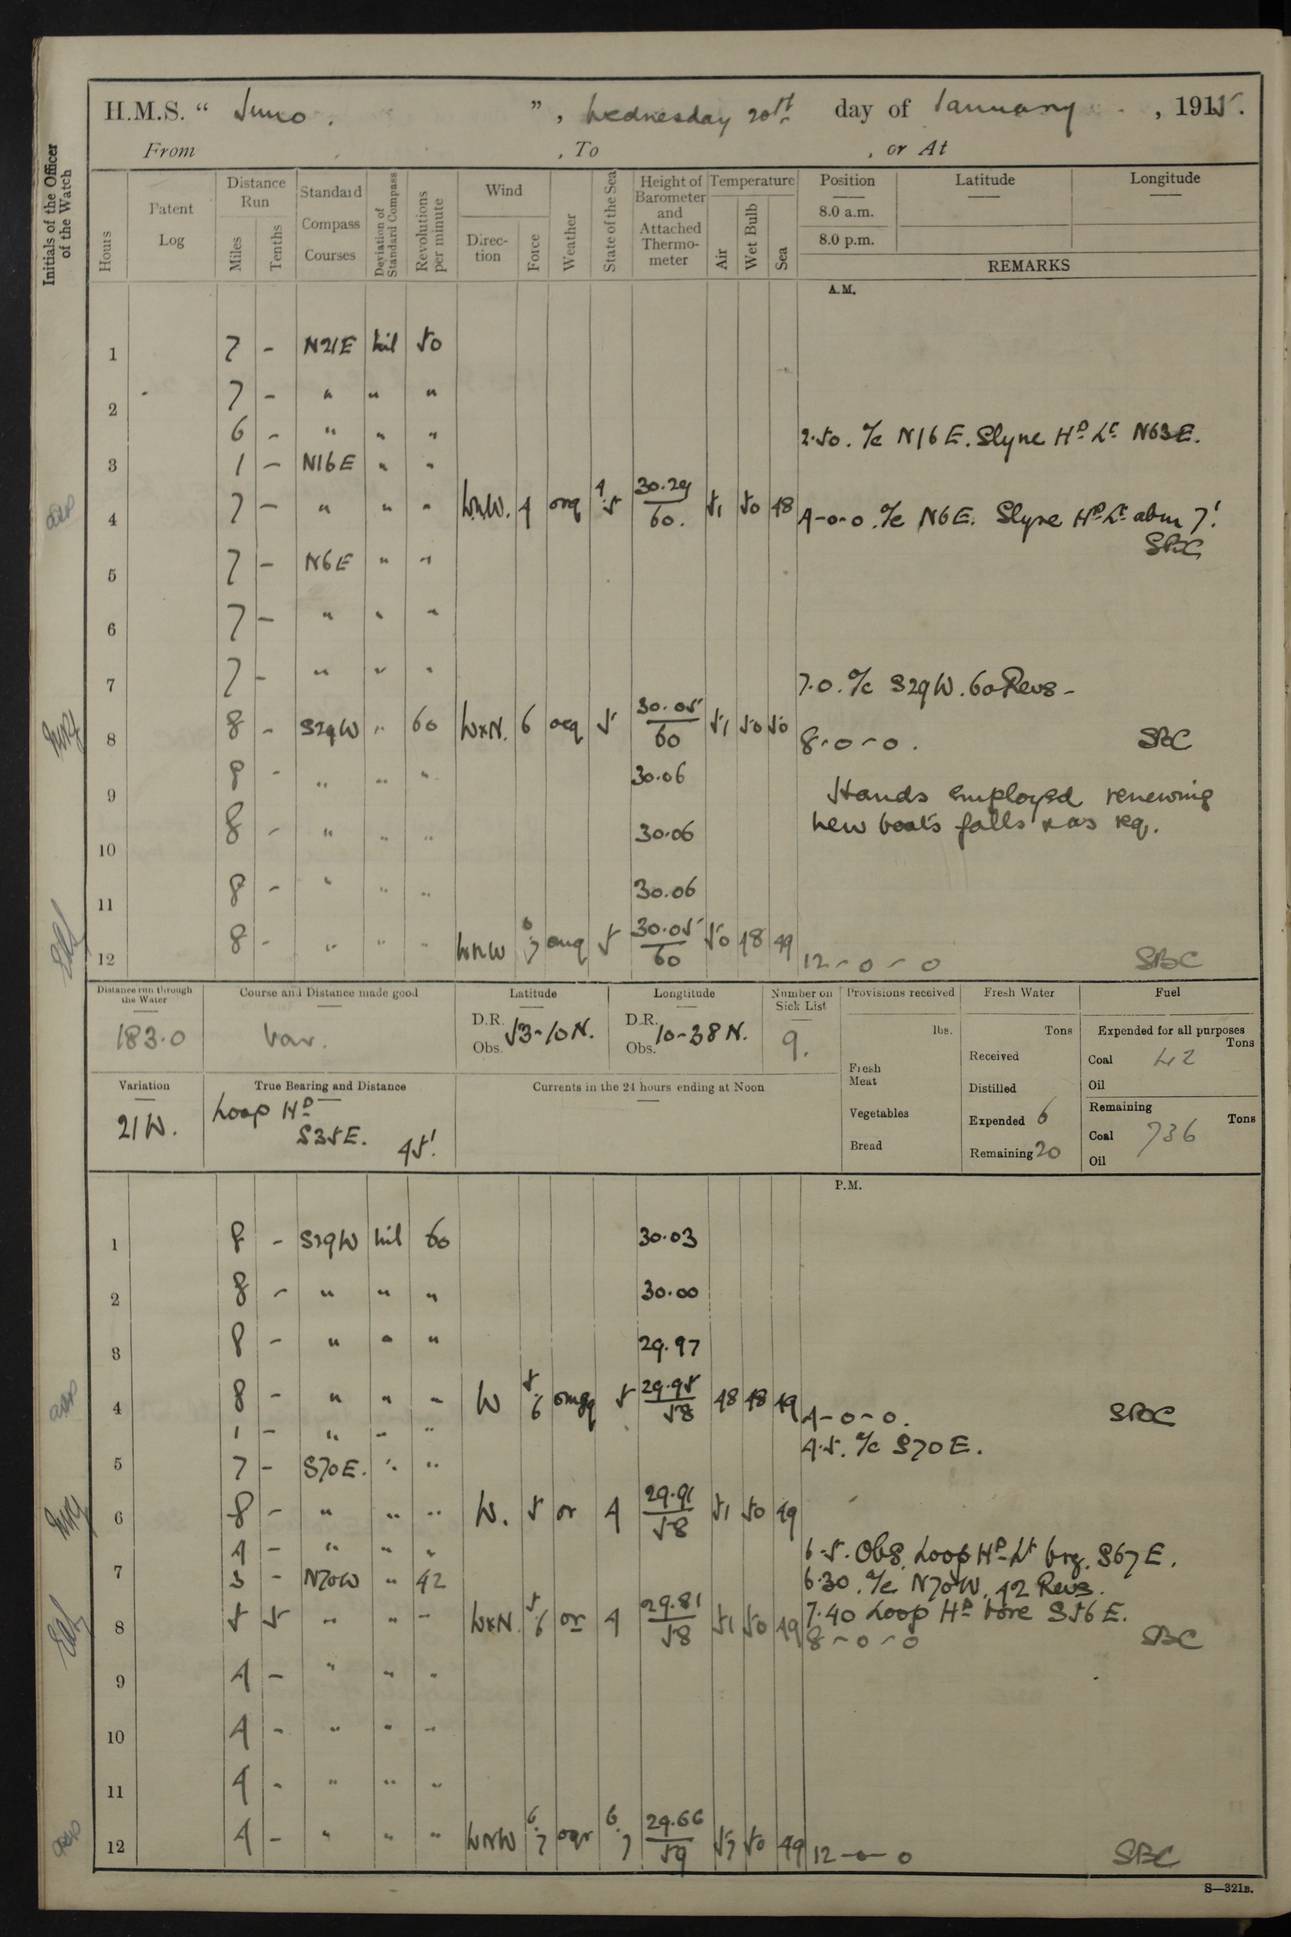 H.M.S. “ Juno. ”, Wednesday 20th day of January, 1915.
From , To , or At
Initials of the Officer of the Watch
Hours
Patent Log
Distance Run
Miles
Tenths
Standard Compass Courses
Deviation of Standard Compass
Revolutions per minute
Wind
Direction
Force
Weather
State of the Sea
Height of Barometer and Attached Thermometer
Temperature
Air
Wet Bulb
Sea
Position Latitude Longitude
8.0 a.m.
8.0 p.m.
REMARKS
A.M.
1 7 - N21E Nil 50
2 7 - " " "
6 - " " " 2.50. A/c N16E. Slyne Hd Lt N63E.
3 1 - N16E " "
4 7 - " " " WNW. 4 orq 4.5 30.29/60. 51 50 48 4-0-0. A/c N6E. Slyne Hd Lt abm 7'.
SBC
5 7 - N6E " "
6 7 - " " "
7 7 - " " " 7.0. A/c S29W. 60 Revs -
8 8 - S29W " 60 WxN. 6 ocq 5 30.05/60 51 50 50 8-0-0. SBC
9 8 - " " " 30.06 Hands employed renewing
10 8 - " " " 30.06 new boats falls & as req.
11 8 - " " " 30.06
12 8 - " " " WNW 6.7 omq 5 30.05/60 50 48 49 12-0-0 SBC
Distance run through the Water 183.0
Course and Distance made good Var.
Latitude D.R. 53-10N. Obs.
Longtitude D.R. 10-38N. Obs.
Number on Sick List 9.
Provisions received lbs.
Fresh Meat
Vegetables
Bread
Fresh Water Tons
Received
Distilled
Expended 6
Remaining 20
Fuel
Expended for all purposes Tons
Coal 42
Oil
Remaining Tons
Coal 736
Oil
Variation 21W.
True Bearing and Distance
Loop Hd
S35E. 45'.
Currents in the 24 hours ending at Noon
P.M.
1 8 - S29W Nil 60 30.03
2 8 - " " " 30.00
3 8 - " " " 29.97
4 8 - " " " W 5.6 omgq 5 29.95/58 48 48 49 4-0-0. SBC
1 - " " " 4.5. A/c S70E.
5 7 - S70E. " "
6 8 - " " " W. 5 or 4 29.91/58 51 50 49
4 - " " " 6.5. Obs. Loop Hd Lt brg. S67E.
7 3 - N70W " 42 6.30. A/c N70W. 42 Revs.
8 5 5 " " " WxN. 5.6 or 4 29.81/58 51 50 49 7.40 Loop Hd bore S56E.
8-0-0 SBC
9 4 - " " "
10 4 - " " "
11 4 - " " "
12 4 - " " " WNW 6.7 oqr 6.7 29.66/59 50 49 12-0-0 SBC
S—321B.